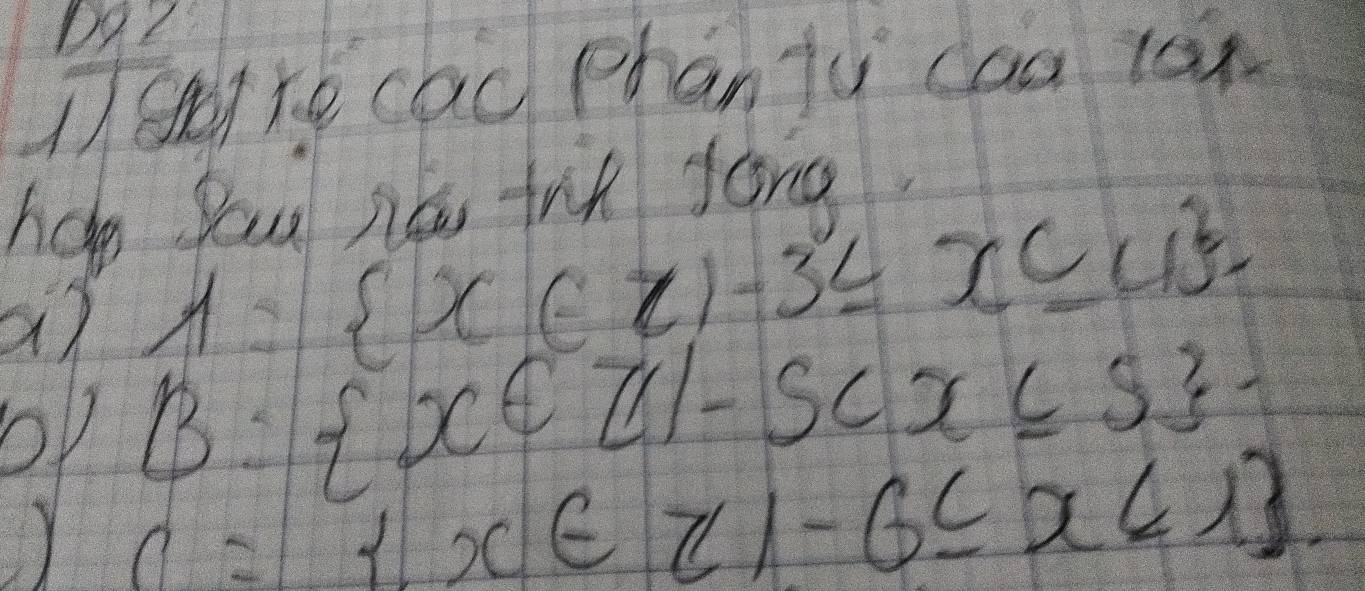 1) các phần tử của tập
hợp sau rồi tính tổng.
a) A = {x ∈ Z | -3 ≤ x ≤ 4}.
b) B = {x ∈ Z | -5 < x ≤ 5}.
) C = {x ∈ Z | -6 ≤ x < 1}.